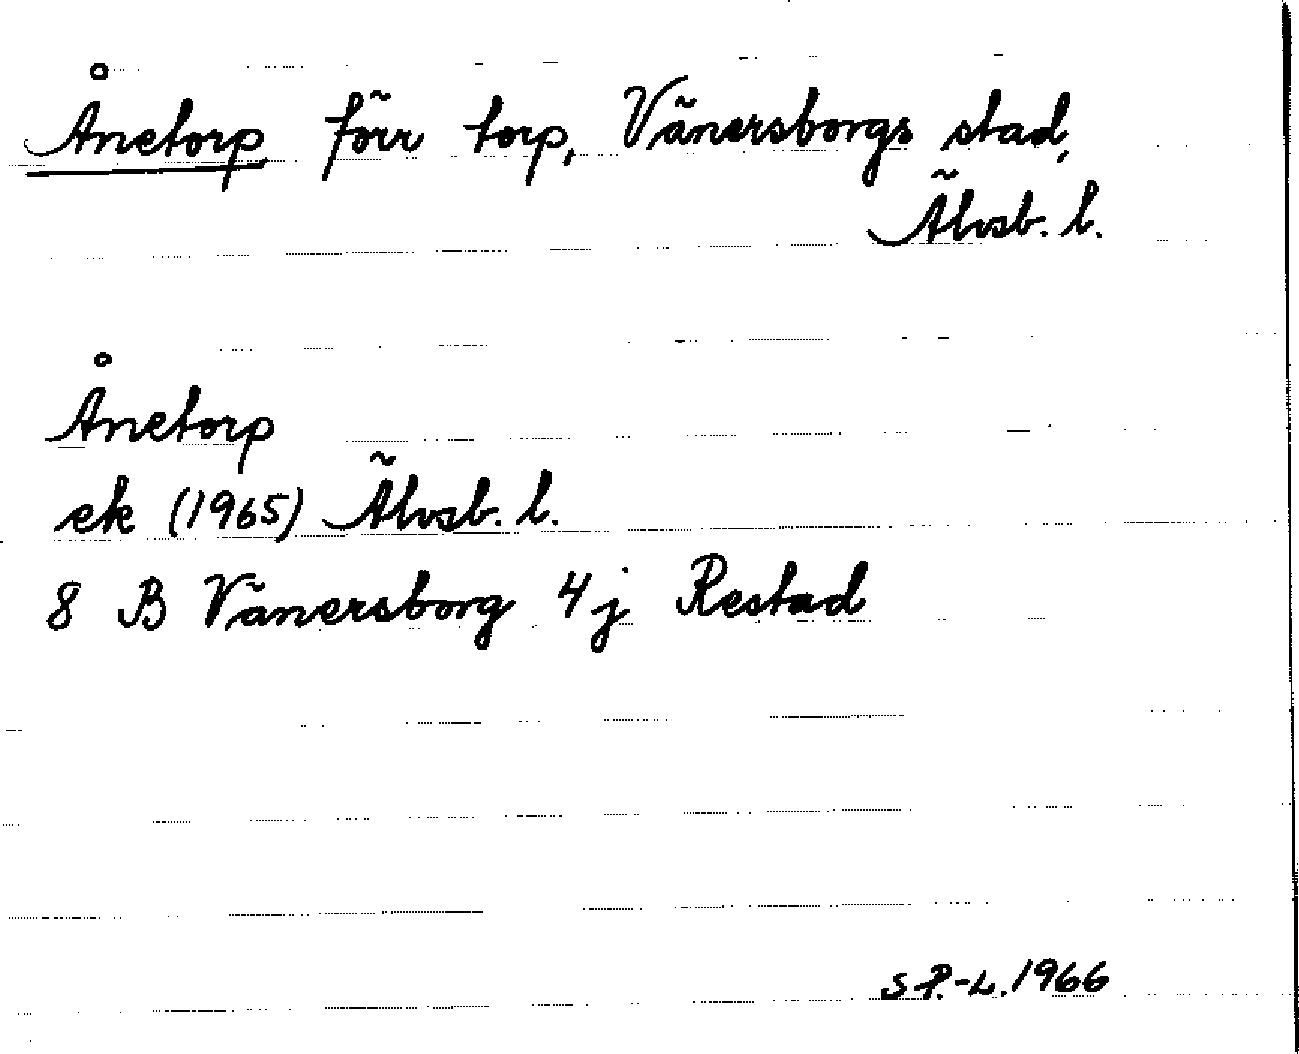 Ånetorp förr torp, Vänersborgs stad,
Älvsb. l.
Ånetorp
ek (1965) Älvsb. l.
8 B Vänersborg 4 j Restad
S P.-L. 1966